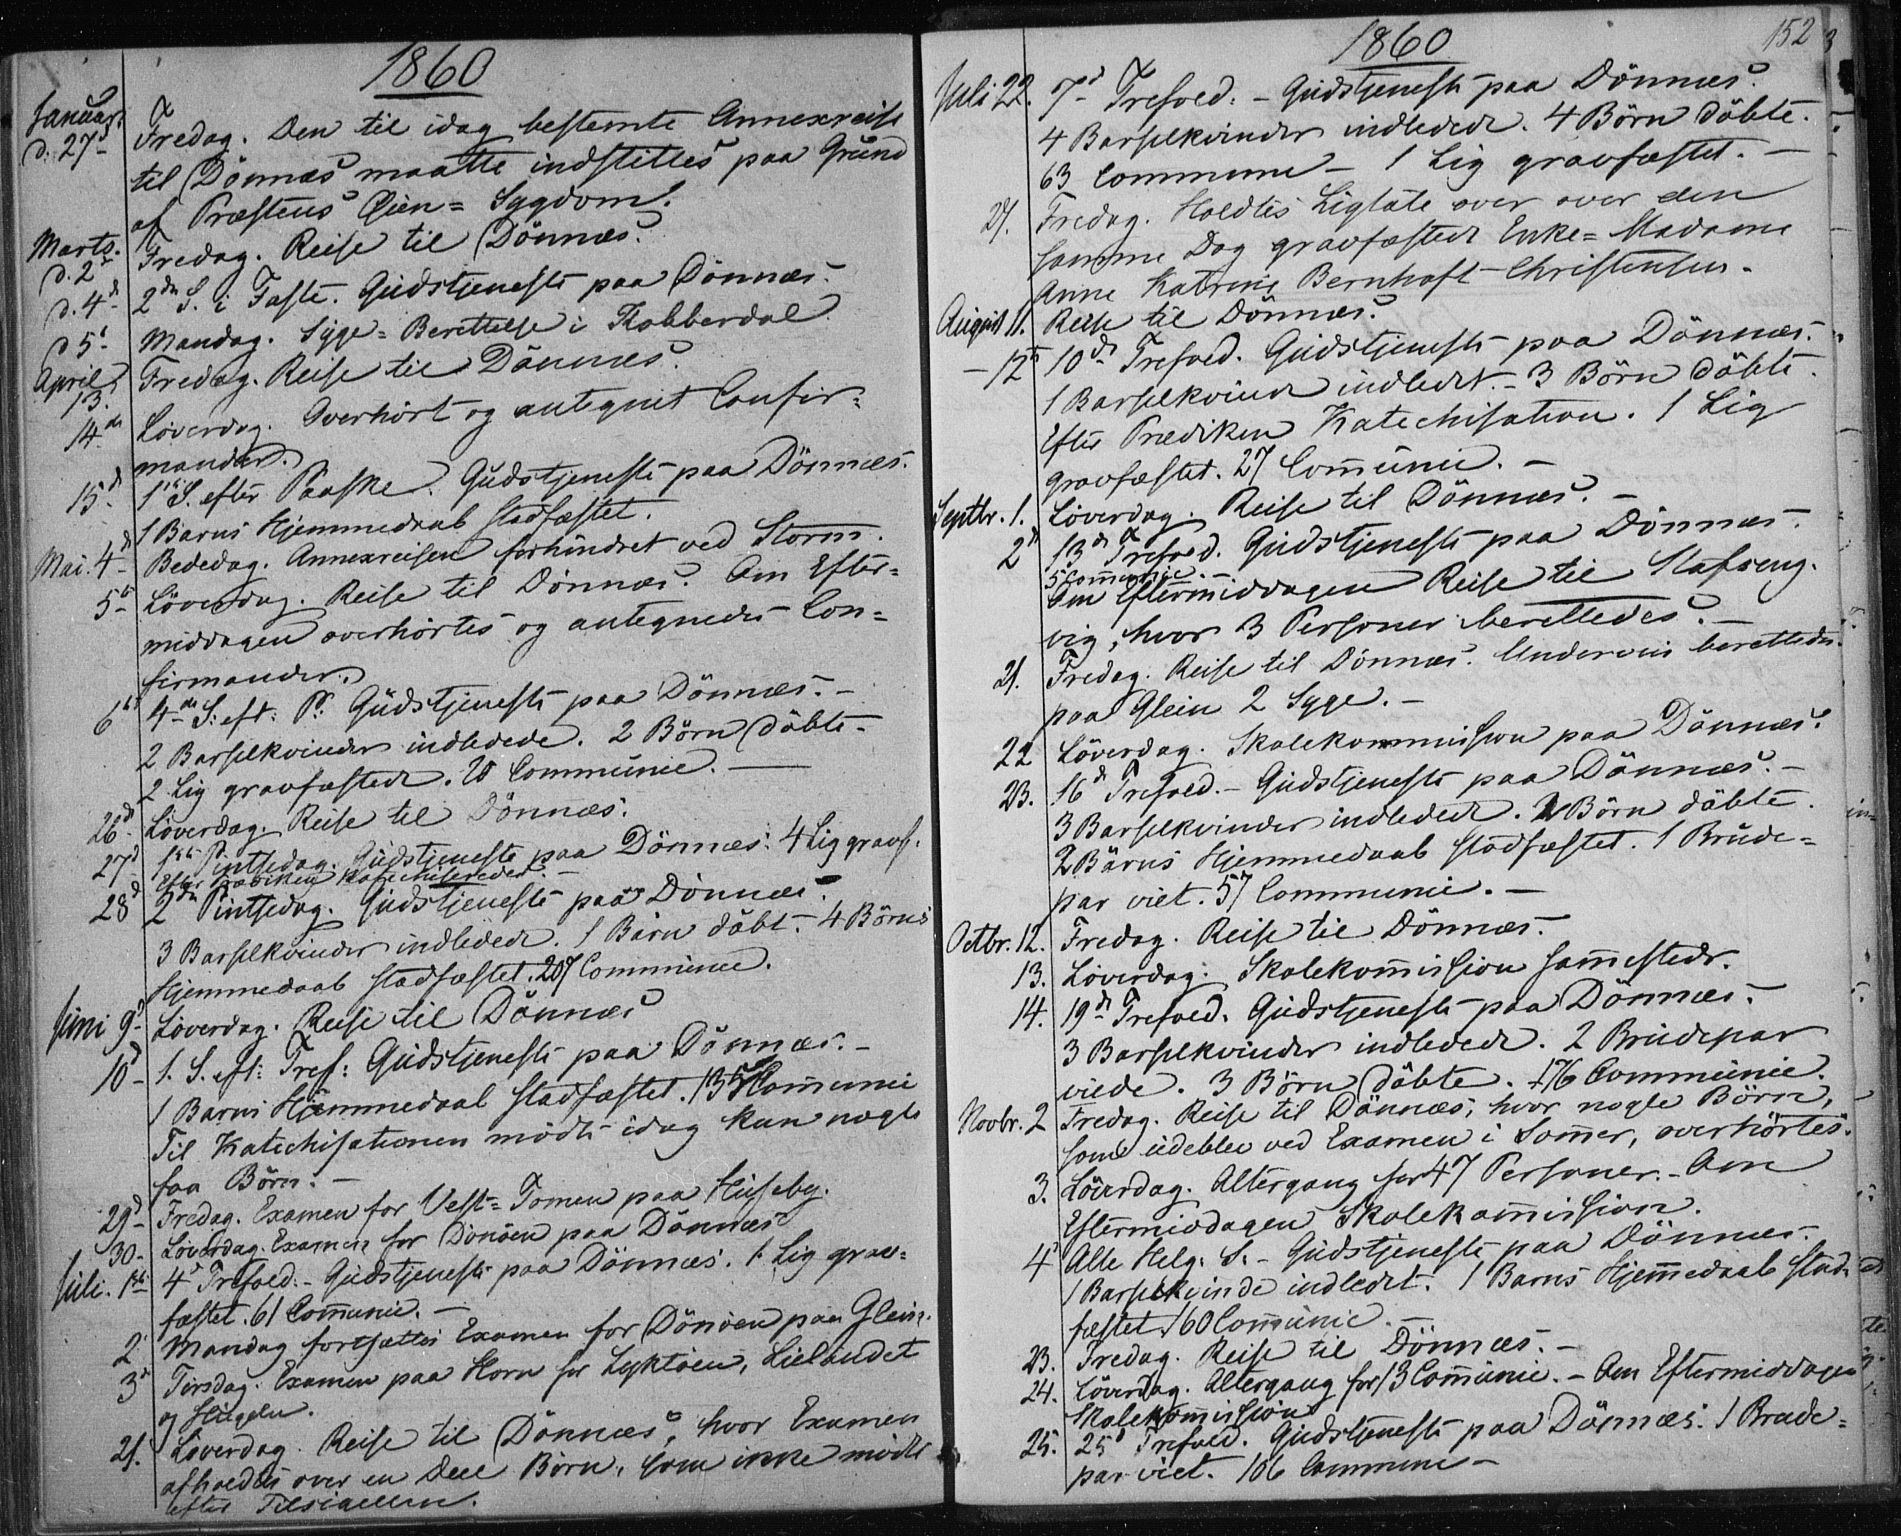 1860
Januar
d. 27d Fredag. Den til idag bestemte Annexreise
til Dönnæs maatte indstilles paa Grund
af Præstens Öien= Sygdom.
Marts.
d. 2d Fredag. Reise til Dönnæs.
d. 4d 2den S. i Faste. Gudstjeneste paa Dönnæs.
d 5t Mandag. Syge= Berettelse i Kobberdal
April
13. Fredag. Reise til Dönnæs.
14de Löverdag. Overhört og antegnet Confir=
mander.
15d 1ste S. efter Paaske. Gudstjeneste paa Dönnæs.
1 Barns Hjemmedaab stadfæstet.
Mai. 4d Bededag. Annexreisen forhindret ved Storm.
5t Löverdag. Reise til Dönnæs. Om Efter=
middagen overhörtes og antegnedes Con=
firmander.
6te 4de S: eft: P: Gudstjeneste paa Dönnæs. –
2 Barselkvinder indledede. 2 Börn döbte –
2 Lig gravfæstede. Communie. –
26d Löverdag. Reise til Dönnæs.
27d 1ste Pintsedag. Gudstjeneste paa Dönnæs. 4 Lig gravf.
Efter Prædiken Katechiseredes. –
28d 2den Pintsedag. Gudstjeneste paa Dönnæs.
3 Barselkvinder indledede. 1 Barn döbt. – 4 Börns
Hjemmedaab stadfæstet. 207 Communie.
Juni 9d Löverdag. Reise til Dönnæs
10d 1. S. eft: Tref: Gudstjeneste paa Dönnæs. –
1 Barns Hjemmedaab stadfæstet. 135 Communie
Til Katechisationen mödte idag kun nogle
faa Börn. –
29d Fredag. Examen for Vest= Tomen paa Huseby.
30 – Löverdag. Examen for Dönöen paa Dönnæs
Juli. 1ste 4d Trefold. – Gudstjeneste paa Dönnæs. 1 Lig grav=
fæstet. 61 Communie. –
2 Mandag fortsattes Examen for Dönöen paa Glein.
3d Tirsdag. Examen paa Horn for Lyktöen,
og
21. Löverdag. Reise til Dönnæs, hvor Examen
afholdtes over en Deel Börn, som ikke mödte
efter Tilsigelsen.
152
1860
Juli 22. 7d Trefold. – Gudstjeneste paa Dönnæs.
4 Barselkvinder indledede. 4 Börn döbte.
63 Communie – 1 Lig gravfæstet. –
27. Fredag. Holdtes Ligtale over over den
samme Dag gravfæstede Enke= Madame
Anne Katrine Bernhoft Christensen.
August 11. Reise til Dönnæs.
– 12te 10de Trefold. Gudstjeneste paa Dönnæs.
1 Barselkvinde indledet. – 3 Börn döbte.
Efter Prædiken Katechisation. 1 Lig
gravfæstet. 27 Communie. –
Septbr. 1. Löverdag. Reise til Dönnæs. –
2d 13de Trefold. Gudstjeneste paa Dönnæs.
5 Communie. –
Om Eftermiddagen Reise til Stafseng.
vig, hvor 3 Personer berettedes. –
21. Fredag. Reise til Dönnæs. Underveis berettedes
paa Glein 2 Syge. –
22 Löverdag. Skolekommission paa Dönnæs.
23. 16d Trefold. – Gudstjeneste paa Dönnæs. –
3 Barselkvinder indledede. Börn döbte.
2 Börns Hjemmedaab stadfæstet. 1 Brude=
par viet. 57 Communie. –
Octbr. 12. Fredag. Reise til Dönnæs. –
13. Löverdag. Skolekommission sammesteds.
14. 19de Trefold. Gudstjeneste paa Dönnæs. –
3 Barselkvinder indledede. 2 Brudepar
viede. 3 Börn döbte. 176 Communie.
Novbr. 2 Fredag. Reise til Dönnæs, hvor nogle Börn,
som udeblev ved Examen i Sommer, overhörtes.
3. Löverdag. Altergang for 47 Personer. – Om
Eftermiddagen Skolekommission.
4d Alle Helg: S. – Gudstjeneste paa Dönnæs. –
1 Barselkvinde indledet. 1 Barns Hjemmedaab stad=
fæstet. 160 Communie. –
23. Fredag. Reise til Dönnæs. –
24. Löverdag. Altergang for 13 Communie. – Om Eftermiddagen
Skolekommission
25. 25d Trefold. Gudstjeneste paa Dönnæs. 1 Brude=
par viet. 106 Communie –